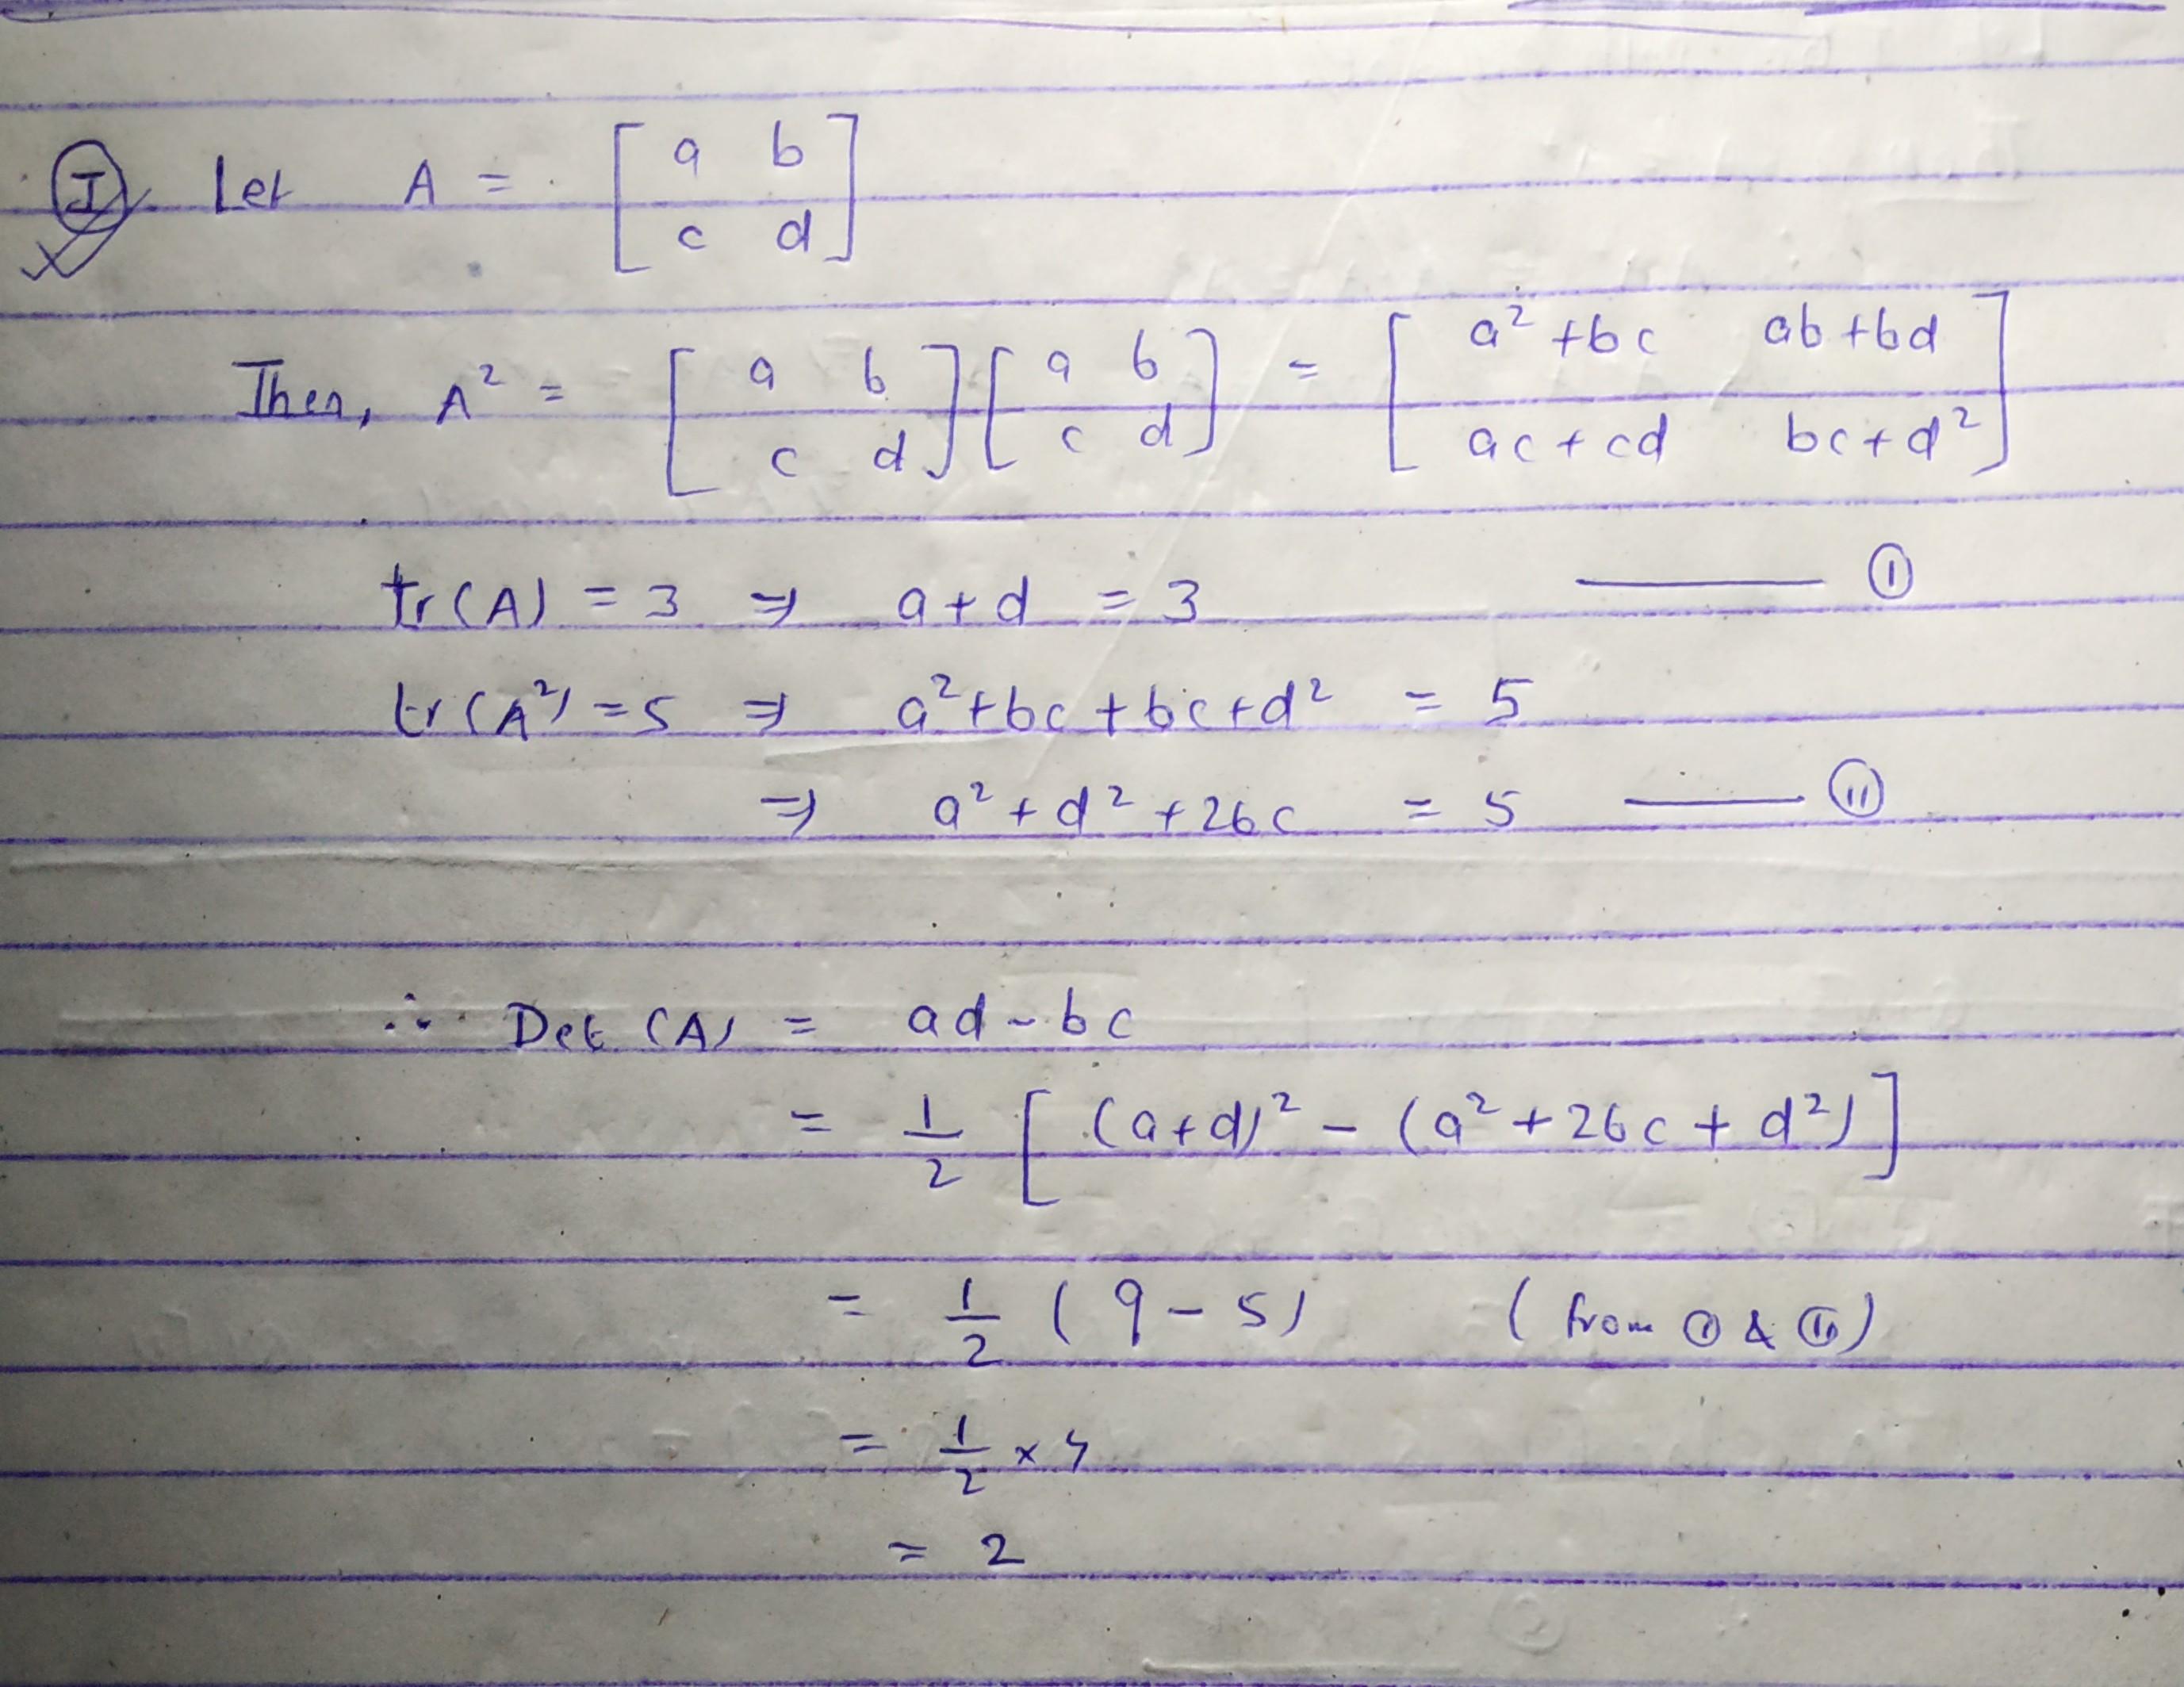 I Let A = [ a b
c d ]
Then, A² = [ a b
c d ] [ a b
c d ] = [ a²+bc ab+bd
ac+cd bc+d² ]
tr(A) = 3 ⇒ a+d = 3 —— I
tr(A²) = 5 ⇒ a²+bc+bc+d² = 5
⇒ a²+d²+2bc = 5 —— II
∴ Det (A) = ad-bc
= 1/2 [ (a+d)² - (a²+2bc+d²) ]
= 1/2 (9-5) (from I & II)
= 1/2 × 4
= 2